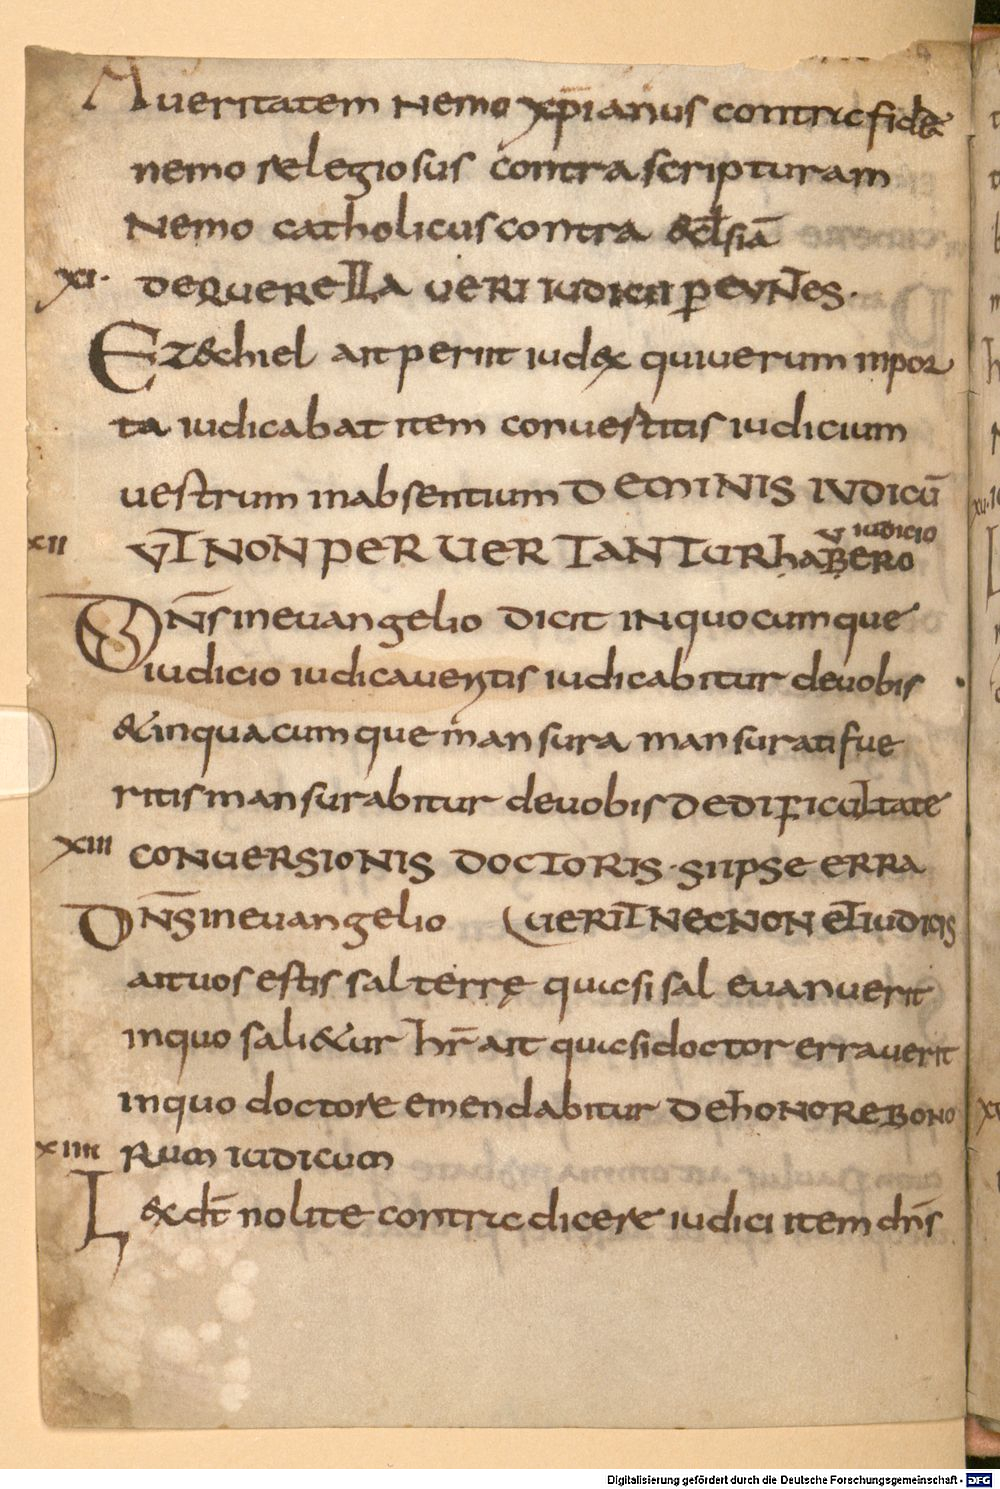 A ueritatem nemo xp̄ianus contra fidē
nemo relegiosus contra scripturam
Nemo catholicus contra &cl̄siā
XI· DE QUERELLA UERI IUDICII PER UNIES·
Ez&chiel ait periit iud&x qui uerum in por
ta iudicabat item conuestitis iudicium
uestrum in absentium DE OMINIS IUDICŪ
XII QUI NON PERUERTANTUR hABERO
U IUDICIO
DN̄S in euangelio dicit IN quocumque
iudicio iudicauertis iudicabitur deuobis
& in quacumque mansura mansurati fue
ritis mansurabitur deuobis DE DIFICULTATE
XIII CONUERSIONIS DOCTORIS · SI IPSE ERRA
DN̄S in euangelio UERIT NECNON ET IUDICIS
ait uos estis sal terrę quic si sal euanuerit
inquo sali&ur hr̄ ait quic si doctor errauerit
inquo doctore emendabitur DE hONORE BONO
XIIII RUM IUDICUM
L&x dt̄ nolite contradicere iudici item dn̄s
Digitalisierung gefördert durch die Deutsche Forschungsgemeinschaft - DFG